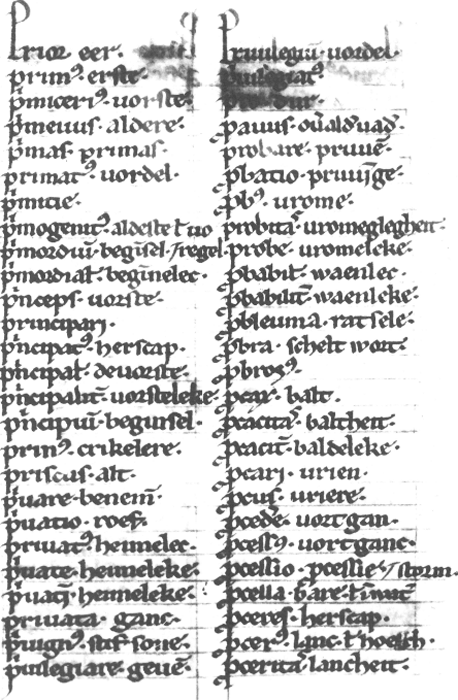 Prior eer.
prim⁹ erste
p̄miceri⁹ uorste
p̄meuus aldere
p̄mas primas
primat⁹ uordel
p̄mitie
p̄mogenit⁹ aldeste
p̄mordiū begīsel regel
p̄mordial begīnelec
p̄nceps uorste
principari
p̄ncipat⁹ herscap
p̄ncipal deuorste
p̄ncipalit̄ uorsteleke
p̄ncipiū beginsel
prim⁹ crikelere
priscus alt
p̄uare benem̄
p̄uatio roef
priuat⁹ heimelec
p̄uate heimeleke
p̄uati heimeleke
priuata ganc
p̄uign⁹ stif sone
p̄uilegiare geuē
Priuilegiū uordel
p̄uilegiat⁹
pro dur
pauus
probare pruuē
ꝓbatio pruuīge
ꝓb⁹ urome
probitas uromegheleit
probe uromelcke
ꝓbabil waenlec
ꝓbabilit̄ waenlcke
ꝓbleuma ratsele
ꝓbra schelt wort
ꝓbros⁹
ꝓcax balt
ꝓcacitas baltheit
ꝓcacit̄ baldeleke
ꝓcari urien
ꝓcus uriere
ꝓcedē uortgan
ꝓcess⁹ uortganc
ꝓcessio ꝓcessie
ꝓcella
ꝓceres herscap
ꝓcer⁹ lanc
ꝓceritas lancheit